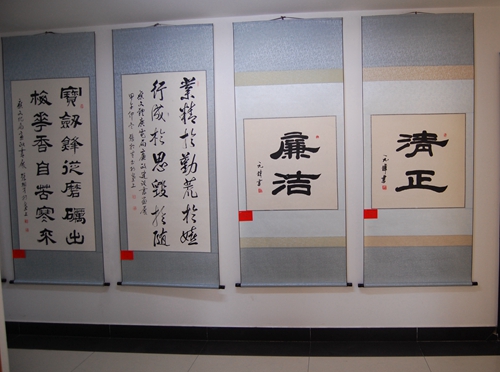 寶劍鋒從磨礪出
梅華香自苦寒來
業精於勤荒於嬉
行成於思毀於随
廉洁
清正